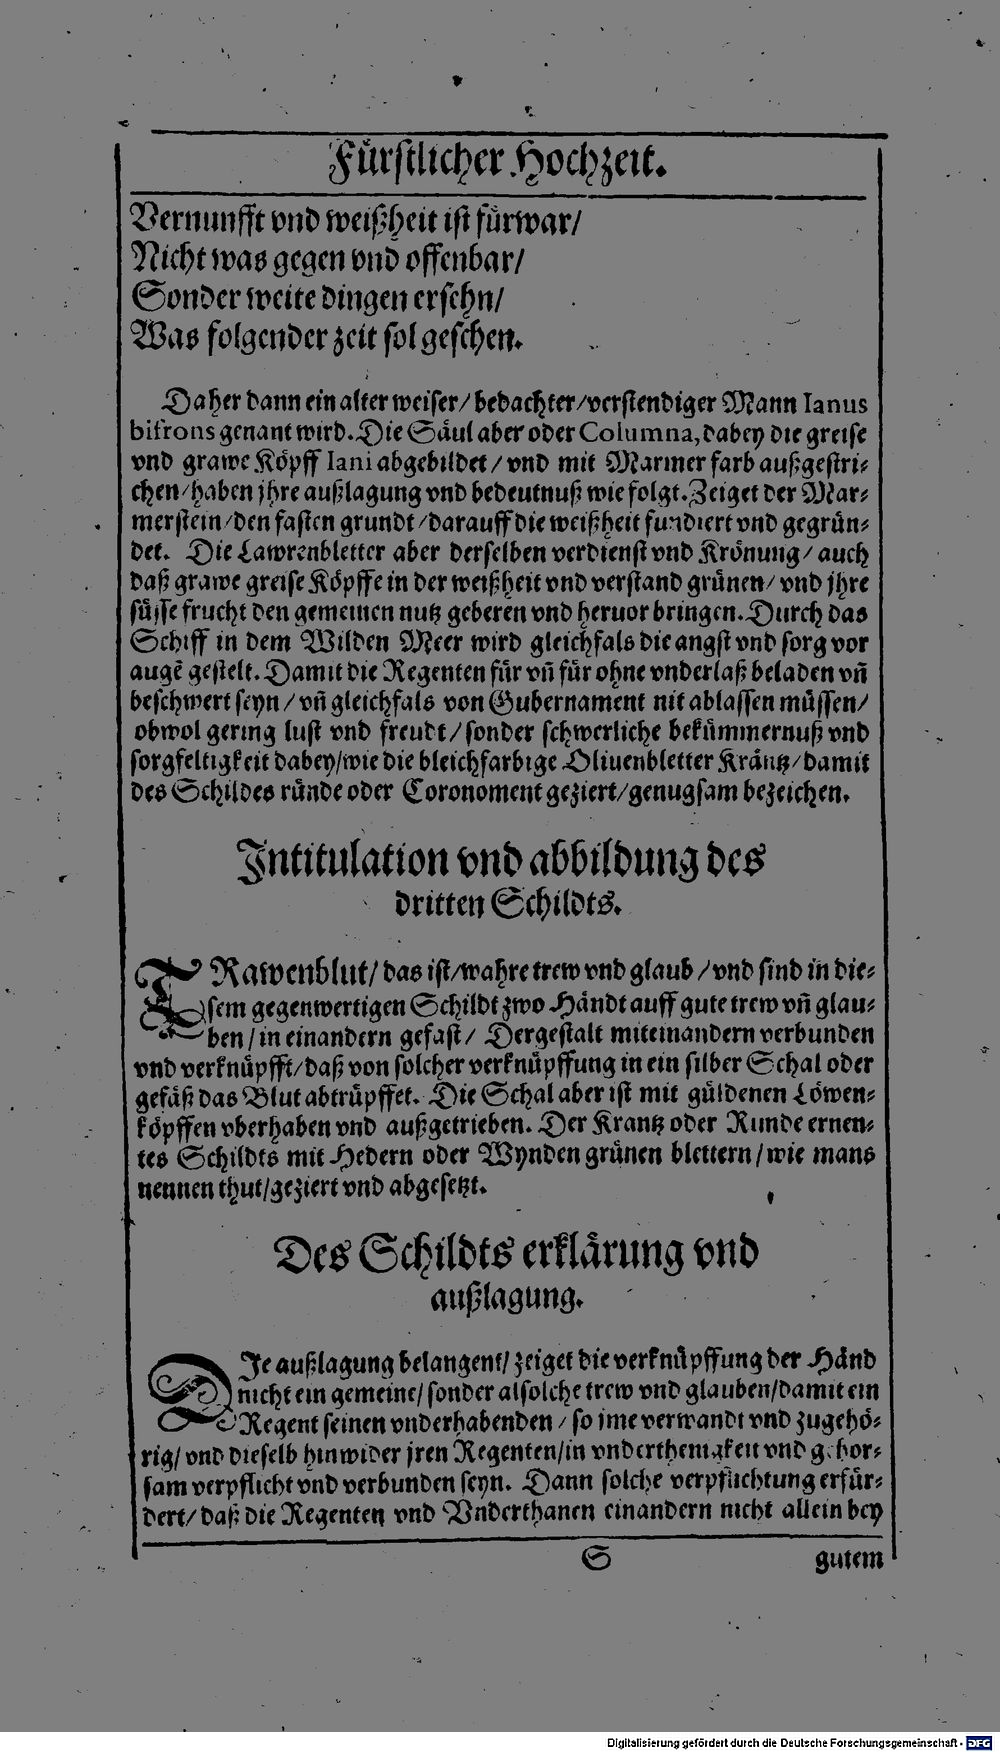 Fürstlicher Hochzeit.
Vernunfft vnd weißheit ist fürwar/
Nicht was gegen vnd offenbar/
Sonder weite dingen ersehn/
Was folgender zeit sol geschen.
Daher dann ein alter weiser/ bedachter/verstendiger Mann Ianus
bifrons genant wird. Die Säul aber oder Columna, dabey die greise
vnd grawe Köpff Iani abgebildet/ vnd mit Marmer farb außgestri-
chen/haben jhre außlagung vnd bedeutnuß wie folgt. Zeiget der Mar-
merstein/den fasten grundt/darauff die weißheit fundiert vnd gegrün-
det. Die Lawrenbletter aber derselben verdienst vnd Krönung/ auch
daß grawe greise Köpffe in der weißheit vnd verstand grünen/ vnd jhre
süsse frucht den gemeinen nutz geberen vnd heruor bringen. Durch das
Schiff in dem Wilden Meer wird gleichfals die angst vnd sorg vor
augẽ gestelt. Damit die Regenten für vñ für ohne vnderlaß beladen vñ
beschwert seyn/ vñ gleichfals von Gubernament nit ablassen müssen/
obwol gering lust vnd freudt/ sonder schwerliche bekümmernuß vnd
sorgfeltigkeit dabey/wie die bleichfarbige Oliuenbletter Kräntz/damit
des Schildes ründe oder Coronoment geziert/genugsam bezeichen.
Intitulation vnd abbildung des
dritten Schildts.
TRawenblut/ das ist/wahre trew vnd glaub/vnd sind in die-
sem gegenwertigen Schildt zwo Händt auff gute trew vñ glau-
ben/ in einandern gefast/ Dergestalt miteinandern verbunden
vnd verknüpfft/daß von solcher verknüpffung in ein silber Schal oder
gefäß das Blut abtrüpffet. Die Schal aber ist mit güldenen Löwen-
köpffen vberhaben vnd außgetrieben. Der Krantz oder Runde ernen-
tes Schildts mit Hedern oder Wynden grünen blettern/wie mans
nennen thut/geziert vnd abgesetzt.
Des Schildts erklärung vnd
außlagung.
DIe außlagung belangent/ zeiget die verknüpffung der Händ
nicht ein gemeine/ sonder alsolche trew vnd glauben/damit ein
Regent seinen vnderhabenden/ so jme verwandt vnd zugehö-
rig/ vnd dieselb hinwider jren Regenten/in vnderthenigkeit vnd gehor-
sam verpflicht vnd verbunden seyn. Dann solche verpflichtung erfür-
dert/ daß die Regenten vnd Vnderthanen einandern nicht allein bey
S gutem
Digitalisierung gefördert durch die Deutsche Forschungsgemeinschaft - DFG